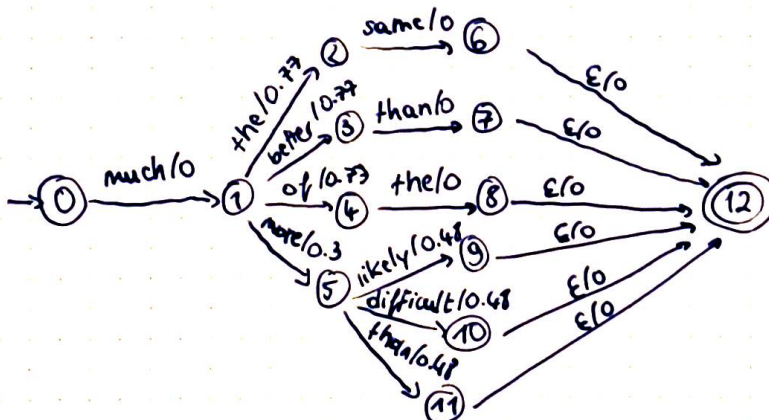 0
much/0
1
the/0.77
2
same/0
6
ε/0
better/0.77
3
than/0
7
ε/0
of/0.77
4
the/0
8
ε/0
more/0.3
5
likely/0.48
9
ε/0
difficult/0.48
10
ε/0
than/0.48
11
ε/0
12